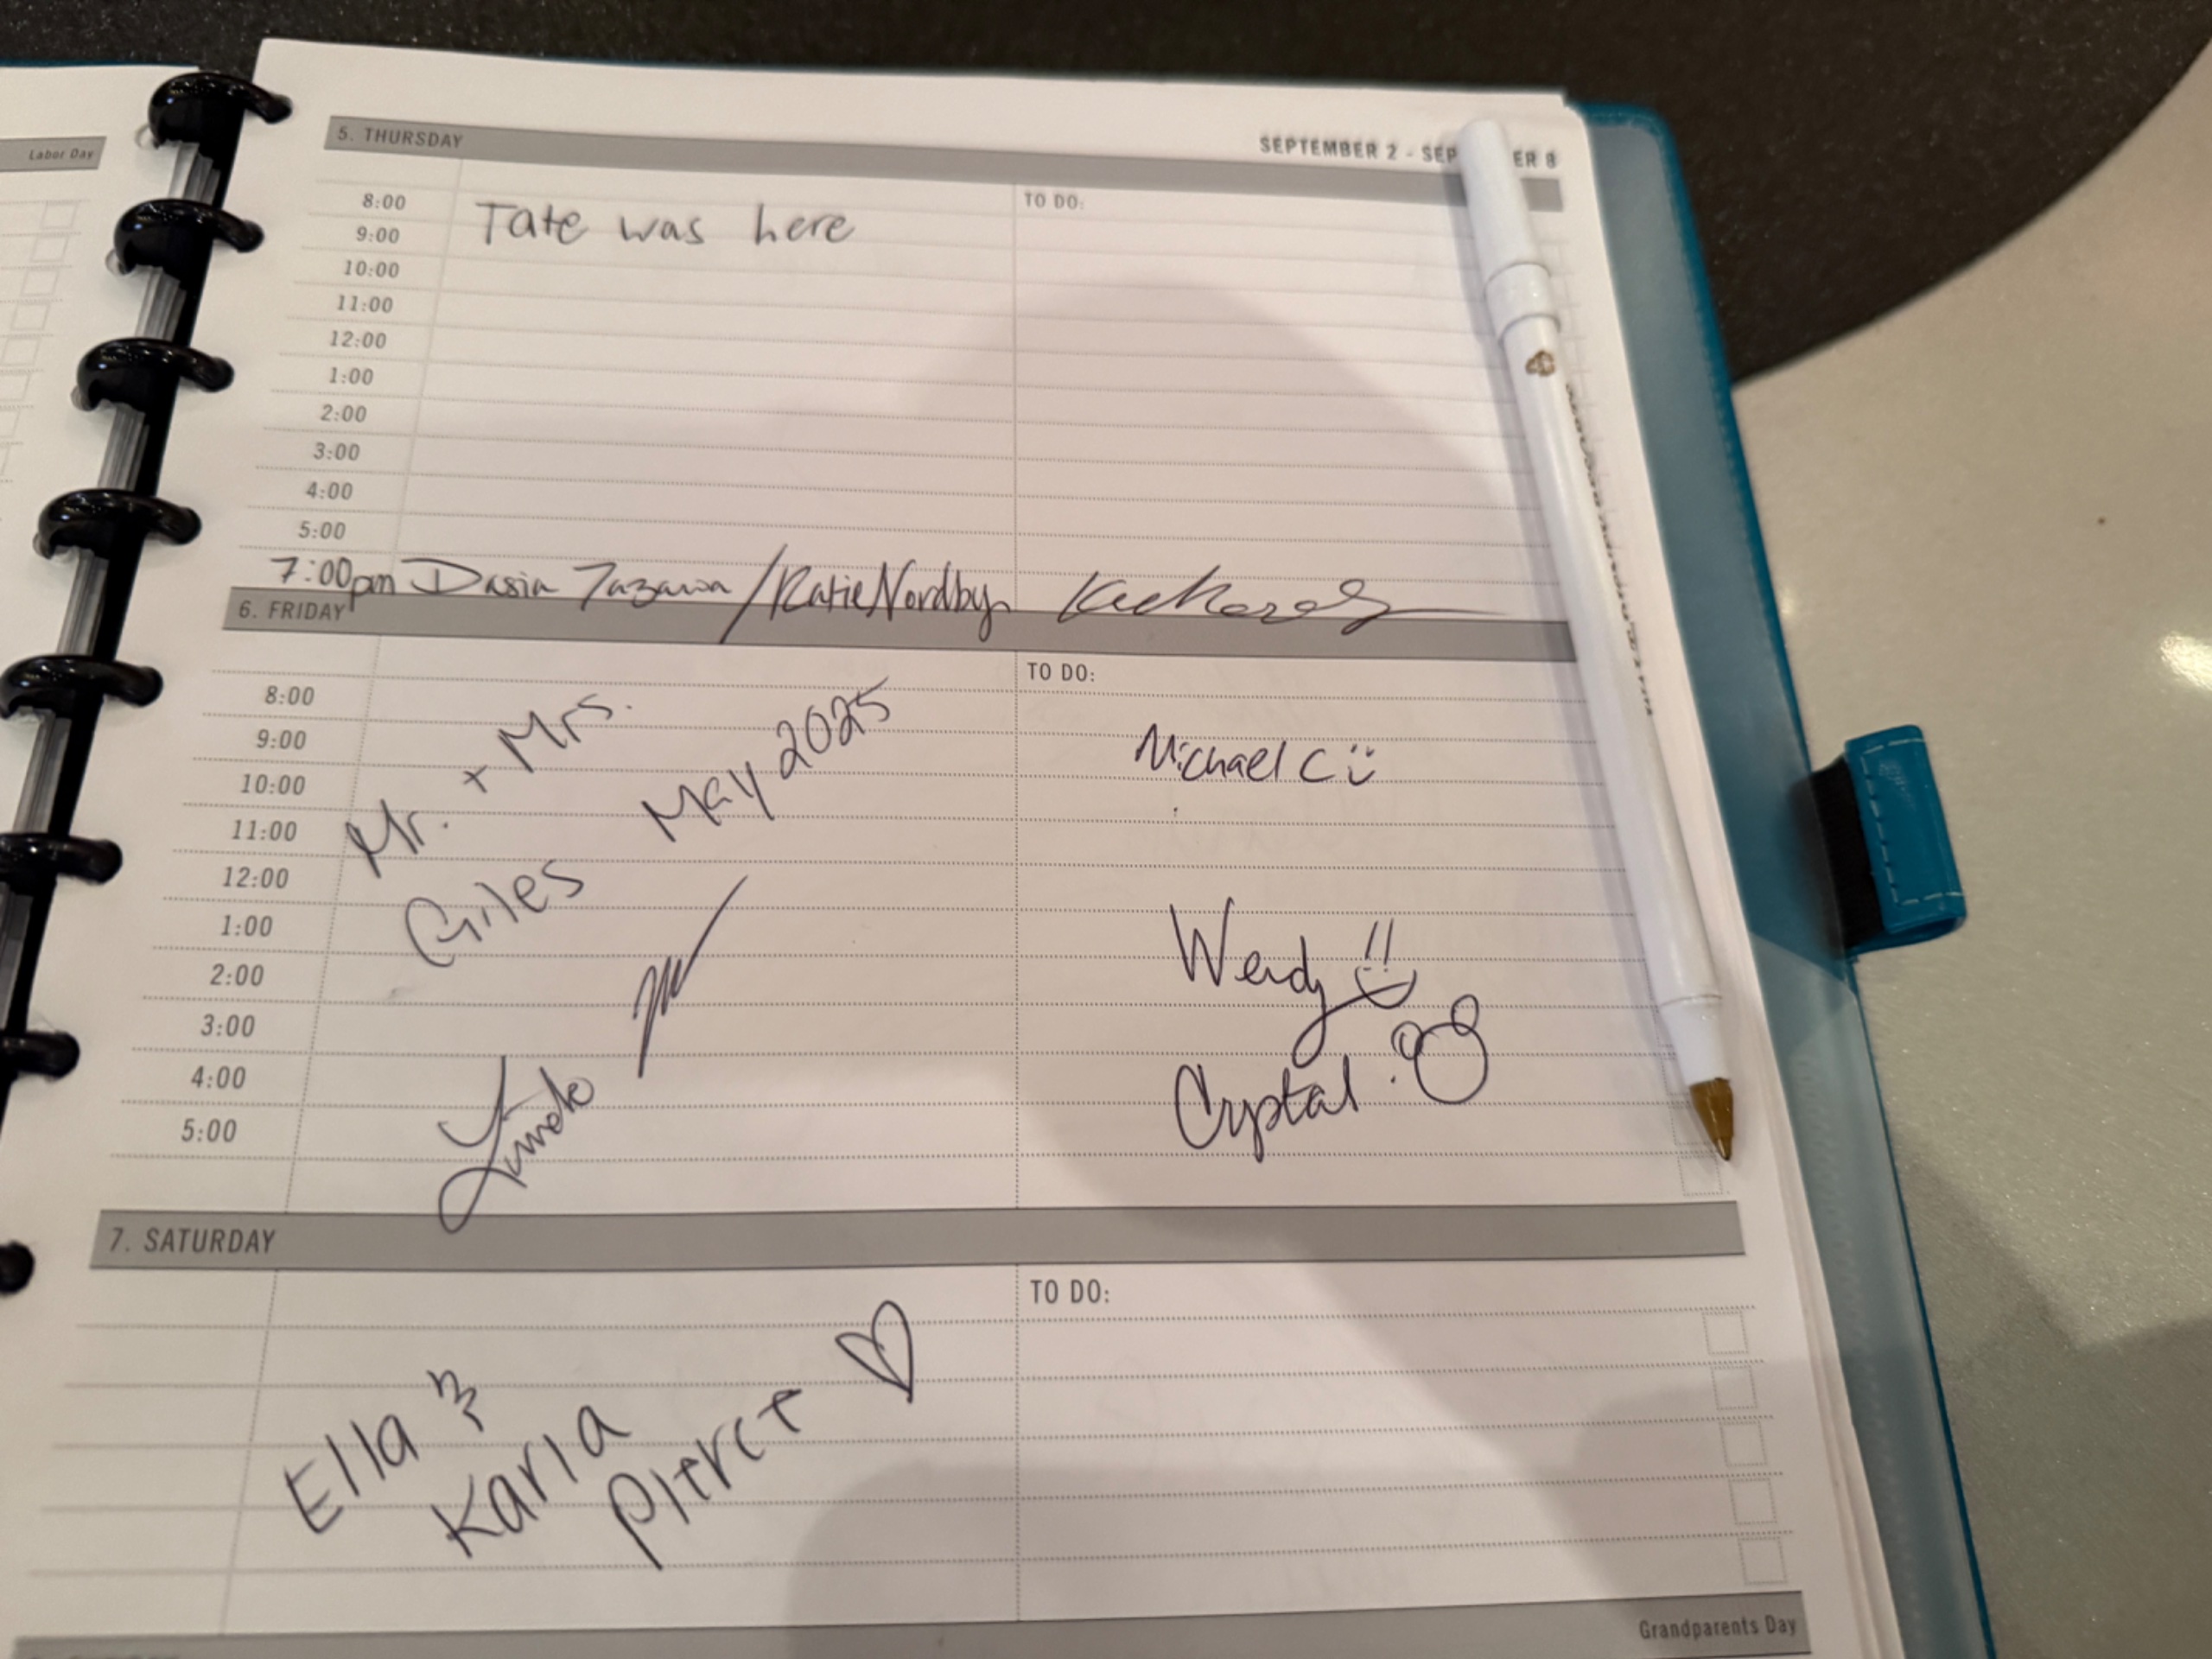 Labor Day
5. THURSDAY
SEPTEMBER 2 - SEP ER 8
TO DO:
8:00
Tate was here
9:00
10:00
11:00
12:00
1:00
2:00
3:00
4:00
5:00
7:00pm Dasia / Katie Nordby
6. FRIDAY
TO DO:
8:00
9:00
10:00
11:00
12:00
1:00
2:00
3:00
4:00
5:00
Mr. + Mrs.
Giles May 2025
Michael C
Wendy
Crystal
7. SATURDAY
TO DO:
Ella &
Karla
Pierce
Grandparents Day